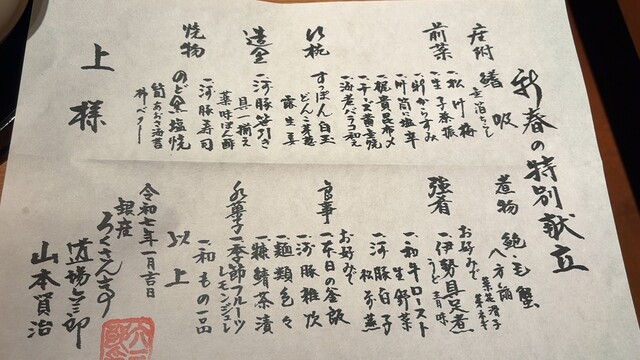 新春の特別献立
座附
鰭吸
前菜
一松川梅
一生子茶振
一新からすみ
一川筍に塩辛
一梶貴昆布〆
一干し貝黄金焼
一海老バラコ和え
口枕
すっぽん白玉
どんこ茸葱
露生姜
造里
一河豚笹引き
具一揃え
薬味ぽん酢
一河豚寿司
焼物
のど黒塩焼
筍あおさ海苔
柿バター
上様
煮物
鮑・毛蟹
菜花滑子
強肴
お好みで
一伊勢具足煮
うど青味
一和牛ロースト
生野菜
一河豚白子
松前蒸
食事
お好みで
一本日の釜飯
一河豚雑炊
一麺類色々
一糠鯖茶漬
水菓子
一季節フルーツ
レモンジュレ
一和もの一品
以上
令和七年一月吉日
銀座
ろくさん亭
道場六三郎
山本賢治